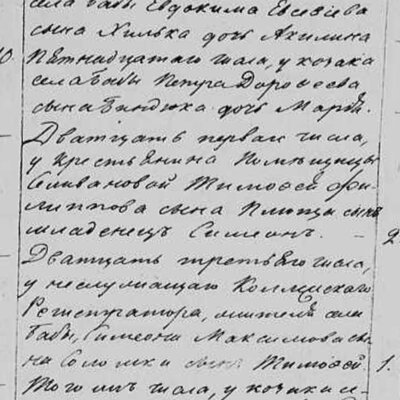 села Бабы Евдокима Евсеѣева
сына Хилька дочь Акилина
10. Пѣтнадцатаго числа, у козака
села Бабы Петра Дорофеева
сына Биндюка дочь Марѳа.
Дватцать перваго числа,
у крестьянина Помѣщицы
Селивановой Тимоѳей Фи-
липпова сына Плющи сынъ
младенецъ Симеонъ. 2.
Дватцать третьяго числа,
у неслужащаго Коллежскаго
Регистратора, жителя села
Бабы, Симеона Максимова сы-
на Соломки сынъ Тимоѳей 1.
Того жъ числа, у козака се-